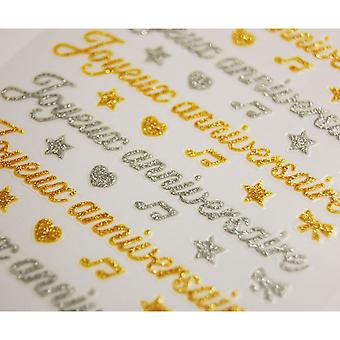 Joyeux anniversaire
Joyeux anniversaire
Joyeux anniversaire
Joyeux anniversaire
Joyeux anniversaire